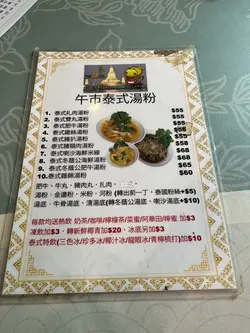 午市泰式湯粉
1. 泰式扎肉湯粉 $55
2. 泰式雙丸湯粉 $55
3. 泰式肥牛湯粉 $55
4. 泰式雞絲湯粉 $55
5. 泰式豬扒湯粉 $55
6. 泰式豬頸肉湯粉 $58
7. 泰式喇沙海鮮米線 $68
8. 泰式冬蔭公海鮮湯粉 $68
9. 泰式冬蔭公肥牛湯粉 $65
10. 泰式雜錦湯粉 $60
肥牛，牛丸，豬肉丸，扎肉，
湯粉：金邊粉，米粉，河粉 (轉出前一丁，泰國粉絲+$5)
湯底：牛骨湯底，清湯底 (轉冬蔭公湯底，喇沙湯底+$10)
每款均送熱飲 奶茶/咖啡/檸檬茶/菜蜜/阿華田/檸蜜 加$3
凍飲加$3， 轉新鮮椰青加$20， 冰底另加$3
泰式特飲(三色冰/珍多冰/椰汁冰/龍眼冰/青檸梳打)加$10